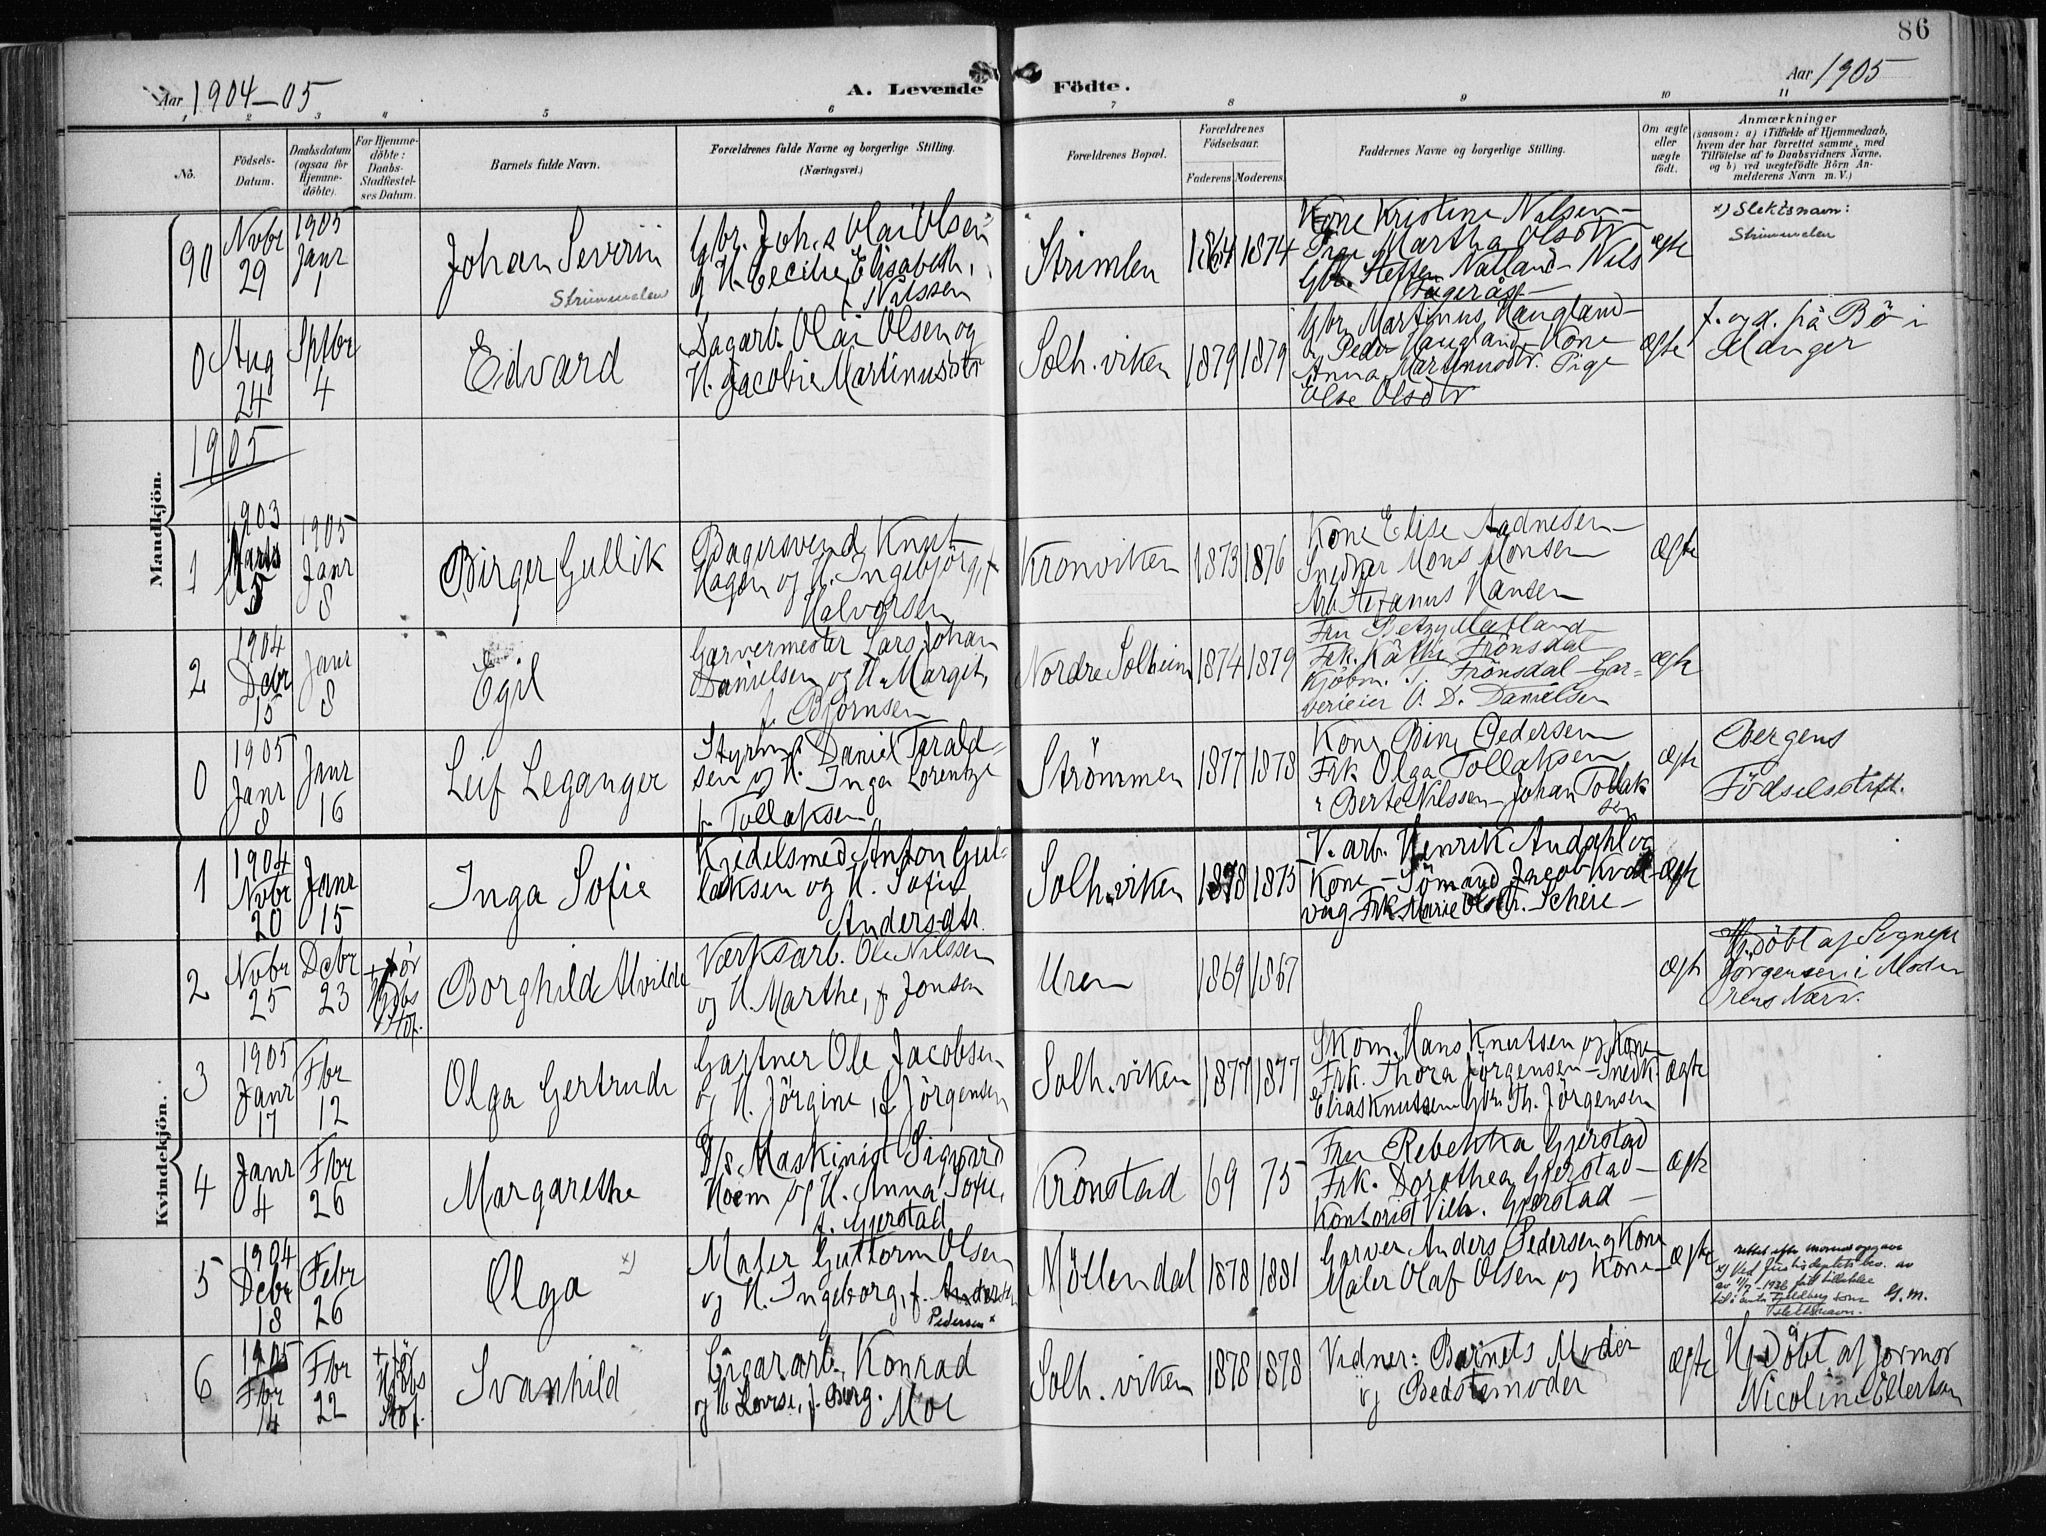 86
Aar 1904-05
A. Levende Födte.
Aar 1905
1 2 3 4 5 6 7 8 9 10 11
No.
Födsels-Datum.
Daabsdatum (ogsaa for Hjemme-döbte).
For Hjemme-döbte: Daabs-Stadfæstel-ses Datum.
Barnets fulde Navn.
Forældrenes fulde Navne og borgerlige Stilling. (Næringsvei.)
Forældrenes Bopæl.
Forældrenes Födselsaar.
Faderens. Moderens.
Faddernes Navne og borgerlige Stilling.
Om ægte eller uægte födt.
Anmærkninger
(saasom: a) i Tilfælde af Hjemmedaab, hvem der har forrettet samme, med Tilföielse af to Daabsvidners Navne, og b) ved uægtefödte Börn An-melderens Navn m. V.)
Mandkjön.
90
Novbr 29
1905 Janr 1
Johan Severin
Strimmelen
Gbr. Johs Olai Olsen
og H. Cecilie Elisabeth,
f. Nilssen
Strimlen
1864 1874
Kone Kristine Nilsen -
Pige Martha Olsdtr
Gbr. Steffen Natland - Nils
Fageråse -
ægte
x) Slektsnavn:
Strimmelen
0
Aug 24
Sptbr 4
Edvard
Dagarb. Olai Olsen og
H. Jacobie Martinusdtr
Solh. viken
1879 1879
Gbr Martinus Haugland -
Peder Haugland - Kone
Anna Martinusdtr. Pige
Else Olsdtr
ægte
f. og d. på Bö i
Manger
1905
1
1903 Marts 5
1905 Janr 8
Birger Gullik
Bagersvend Knut
Hagen og H. Ingebjörg f.
Halvorsen
Kronviken
1873 1876
Kone Elise Aadnesen -
Snedker Mons Monsen
Arb Stefanus Hansen
Ægte
2
1904 Decbr 15
Janr 8
Egil
Garvermester Lars Johan
Danielsen og H. Margit,
f. Björnsen
Nordre Solheim
1874 1879
Fru Betzy Matland -
Frk. Käthe Frönsdal
Kjöbm. Frönsdal - Gar-
verieier D. Danielsen
ægte
0
1905 Janr 8
Janr 16
Leif Leganger
Styrm. Daniel Tarald-
sen og H. Inga Lorentze
f. Tollaksen
Strömmen
1877 1878
Kone Bine Pedersen
Frk Olga Tollaksen
" Berte Nilssen - Johan Tollak
sen
ægte
Bergens
Födselsstift.
Kvindekjön.
1
1904 Novbr 20
Janr 15
Inga Sofie
Kjedelsmed Anton Gul-
laksen og H. Sofie
Andersdtr.
Solh. viken
1878 1875
V. arb. Henrik Andahl og
Kone - Sömand Jacob Kval-
våg - Frk Marie Scheie -
ægte
2
Novbr 25
Decbr 23
+ för
Hjdbs
Stf.
Borghild Alvilde
Værksarb. Ole Nilssen
og H. Marthe, f. Jonsen
Uren
1869 1867
ægte
Hj. döbt af Signe
Jörgensen i Moder
ens Nærv.
3
1905 Janr 17
Fbr 12
Olga Gertrude
Gartner Ole Jacobsen
og H. Jörgine, f. Jörgensen
Solh. viken
1877 1877
Skom. Hans Knutsen og Kone
Frk. Thora Jörgensen - Snedk
Elias Knutsen Gbr. Th. Jörgensen
ægte
4
Janr 4
Fbr 26
Margarethe
D/s. Maskinist Sigvard
Hoem og H. Anna Sofie,
f. Gjerstad
Kronstad
69 75
Fru Rebekka Gjerstad
Frk. Dorothea Gjerstad -
Kontorist Vilh. Gjerstad -
ægte
5
1904 Decbr 18
Febr 26
Olga x)
Maler Guttorm Olsen
og H. Ingeborg, f. Andersen
Pedersen x
Möllendal
1878 1881
Garver Anders Pedersen og Kone
Maler Olaf Olsen og Kone -
ægte
rettet efter morens opgave
x) Ved Justisdeptets bev. av
1926 tillatelse
Fjeldberg som
slektsnavn. G. M.
6
1905 Fbr 14
Fbr 22
+ för
Hjdbs
Stf.
Svanhild
Cigararb. Konrad
og H. Lovise, f. Berg. Moe
Solh. viken
1878 1878
Vidner: Barnets Moder
og Bedstemoder
ægte
Hj. Döbt af Jormor
Nicoline Ellertsen